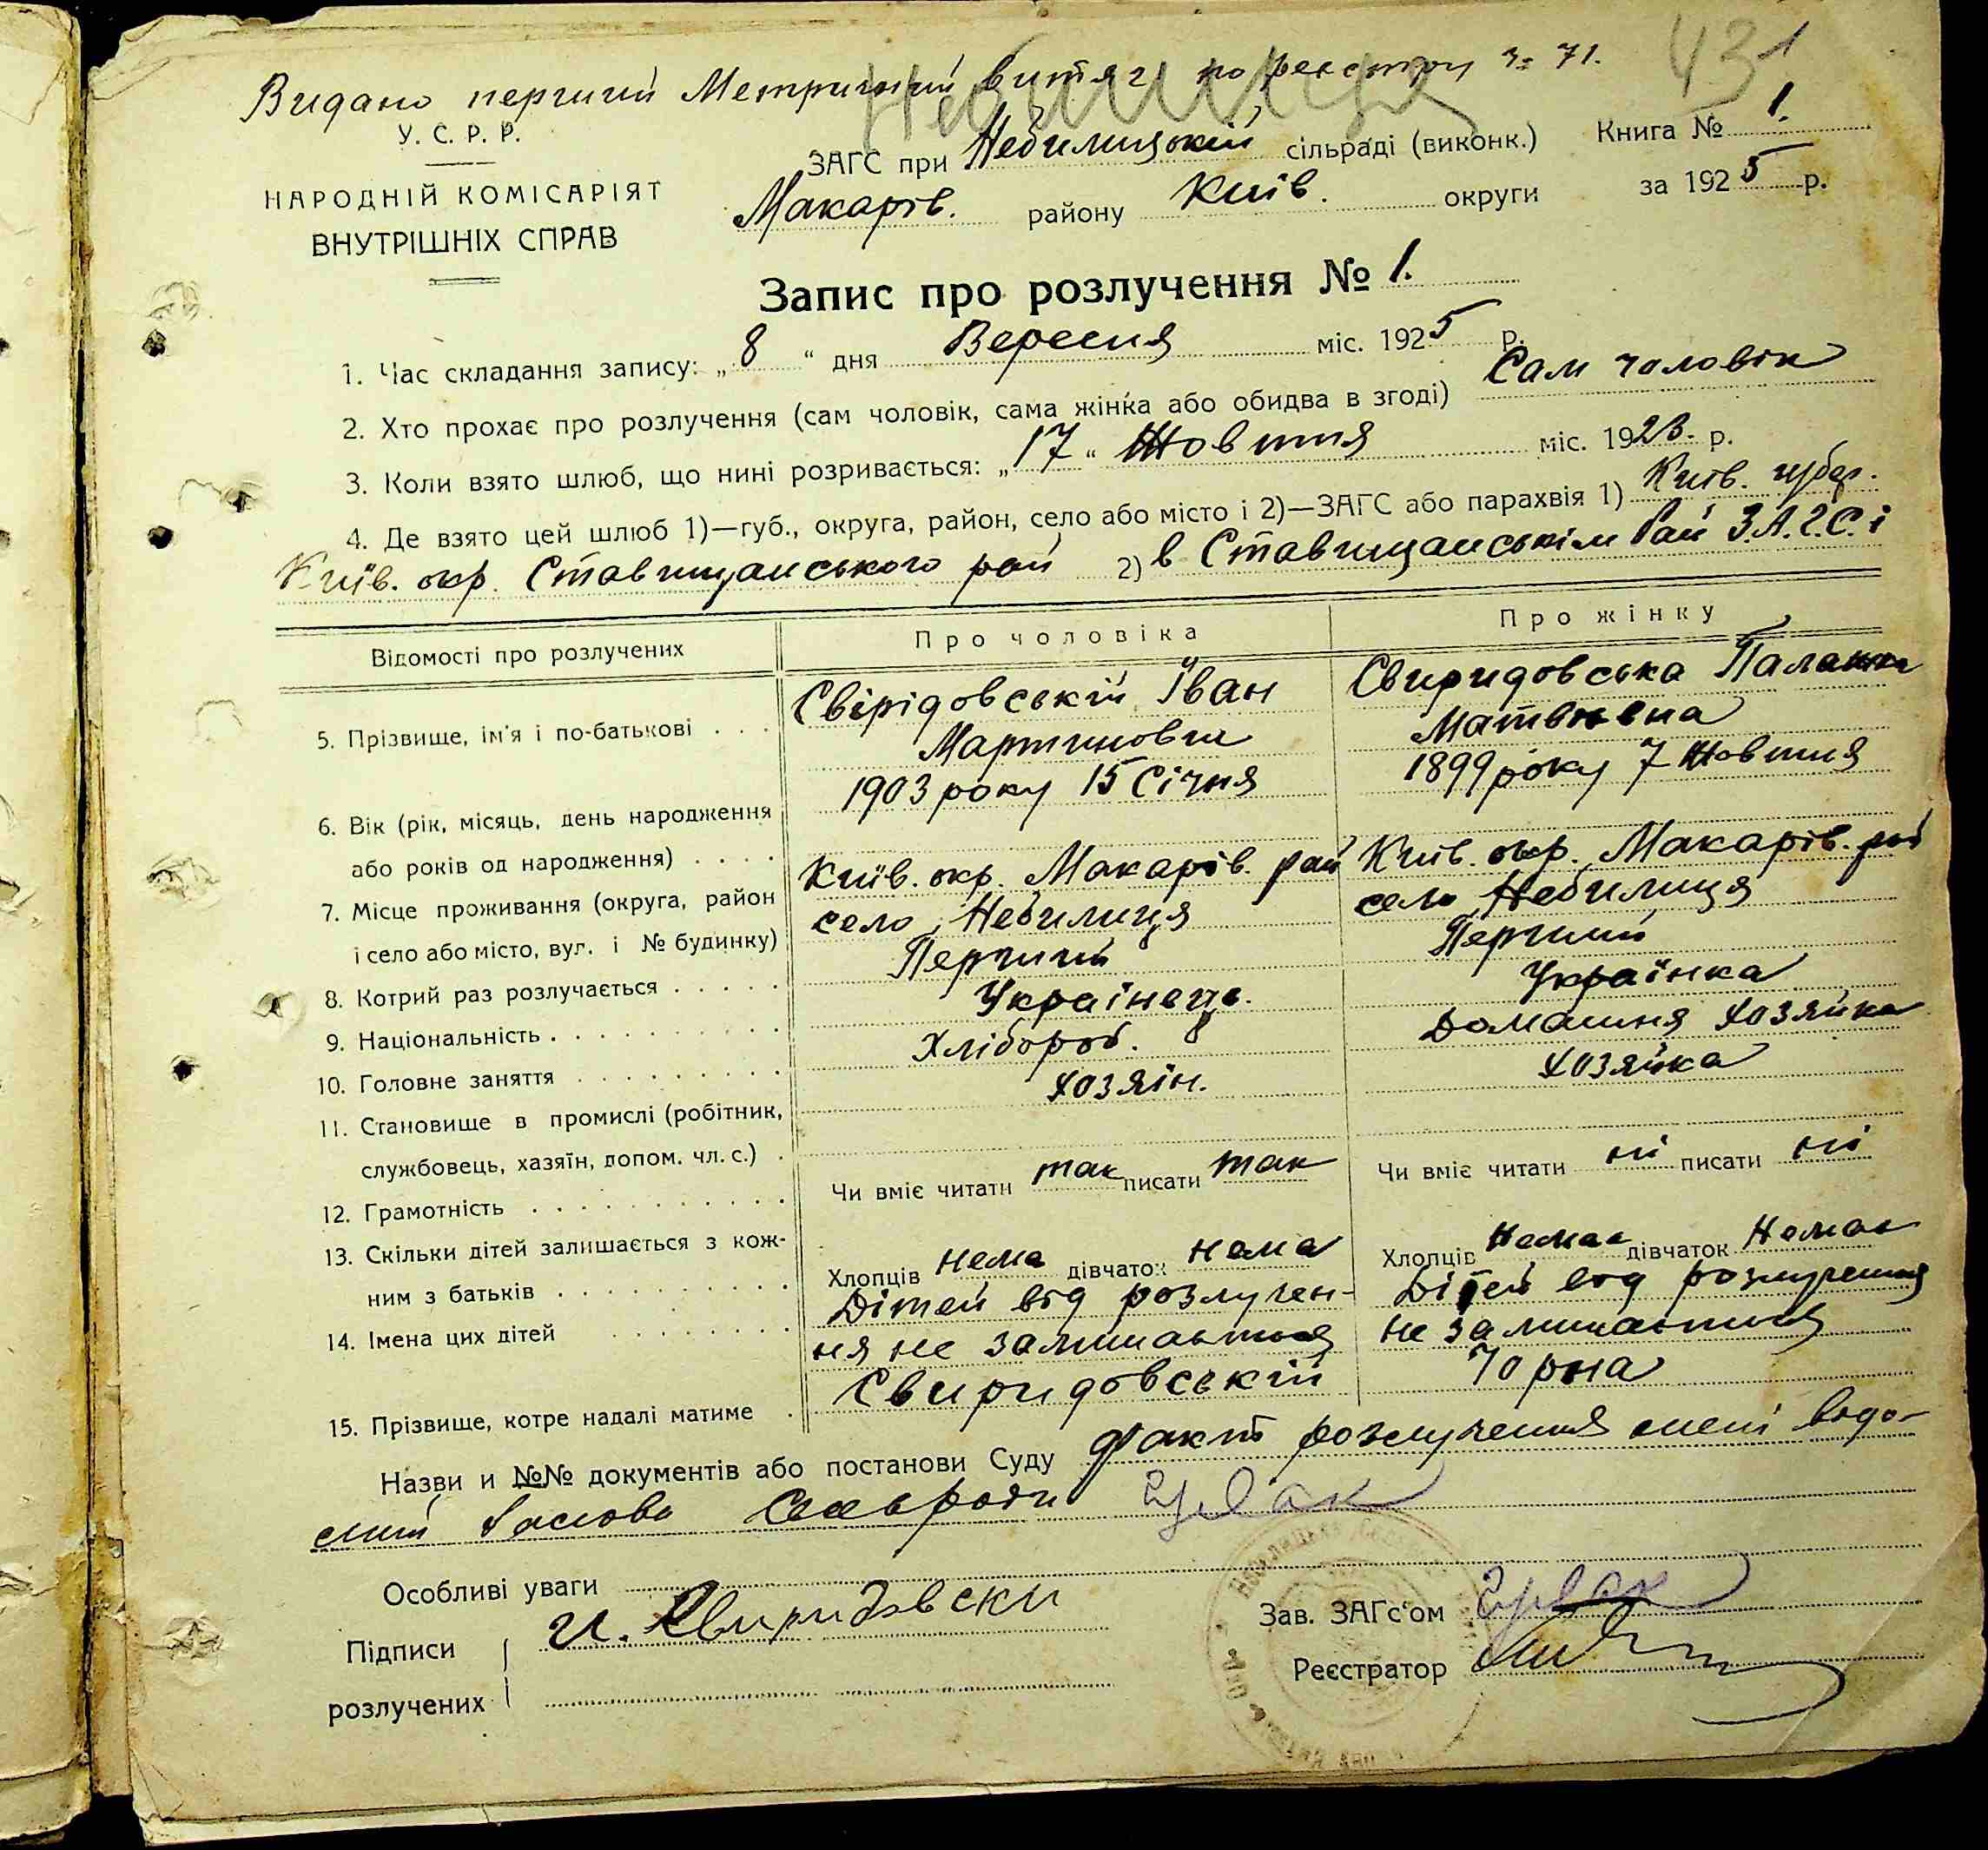 431
Видано перший Метричний витяг по реєстру № 71.
Небилиця
У. С. Р. Р.
НАРОДНІЙ КОМІСАРІЯТ
ВНУТРІШНІХ СПРАВ
ЗАГС при Небилицькій сільраді (виконк.) Книга № 1.
Макарів. району Київ. округи за 1925 р.
Запис про розлучення № 1.
1. Час складання запису: „8“ дня Вересня міс. 1925 р.
2. Хто прохає про розлучення (сам чоловік, сама жінка або обидва в згоді) Сам чоловік
3. Коли взято шлюб, що нині розривається: „17“ Жовтня міс. 1923. р.
4. Де взято цей шлюб 1)—губ., округа, район, село або місто і 2)—ЗАГС або парахвія 1) Київ. губер.
Київ. окр. Ставищанського рай 2) в Ставищанськім Рай З.А.Г.С.і
Відомості про розлучених Про чоловіка Про жінку
5. Прізвище, ім'я і по-батькові . . . Свірідовській Іван Мартинович
Свиридовська Палажка Матвієвна
6. Вік (рік, місяць, день народження
або років од народження) . . . . 1903 року 15 Січня
1899 року 7 Жовтня
7. Місце проживання (округа, район
і село або місто, вул. і № будинку) Київ. окр. Макарів. рай село Небилиця
Київ. окр. Макарів. рай село Небилиця
8. Котрий раз розлучається . . . . . Перший Перший
9. Національність . . . . . . . . . Українець. Українка
10. Головне заняття . . . . . . . . . Хлібороб. Домашня хозяйка
11. Становище в промислі (робітник,
службовець, хазяїн, допом. чл. с.) . Хозяін. Хозяйка
12. Грамотність . . . . . . . . . . . Чи вміє читати так писати так Чи вміє читати ні писати ні
13. Скільки дітей залишається з кож-
ним з батьків . . . . . . . . . . Хлопців нема дівчаток нема Хлопців Немає дівчаток Немає
14. Імена цих дітей . . . . . . . . Дітей від розлучен-
ня не залишається
Дітей від розлучення
не залишається
15. Прізвище, котре надалі матиме . Свиридовській
Назви и №№ документів або постанови Суду факт розлучення мені відо-
мий
Особливі уваги
Підписи
розлучених
И. Свиридовски
Зав. ЗАГс'ом
Реєстратор